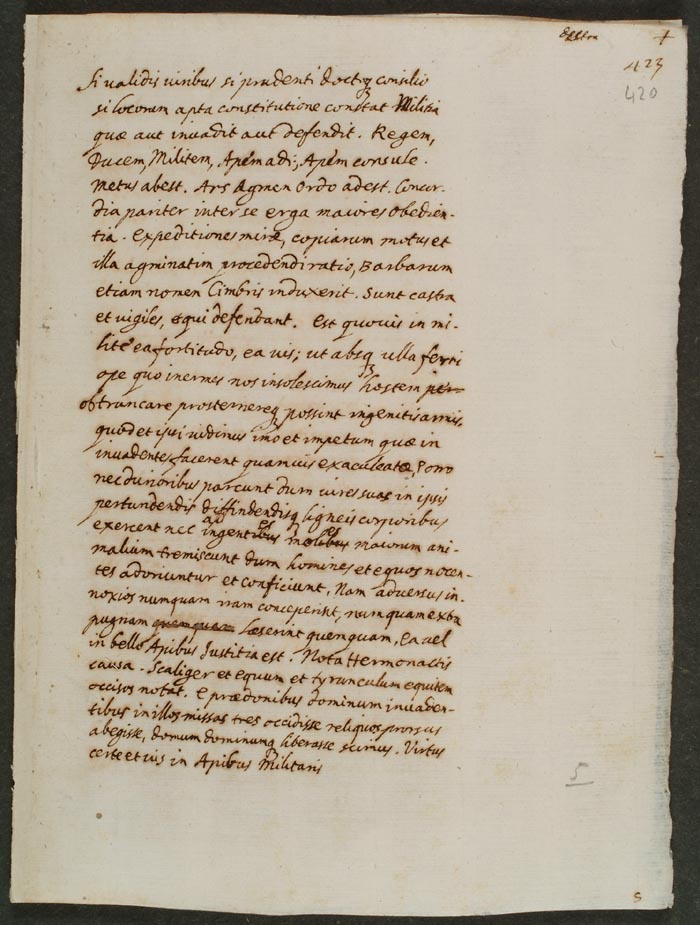 +
423
420
Si validis viribus si prudenti doctoq consilio
si locorum apta constitutione constat Militia
quæ aut invadit aut defendit. Regem,
Ducem, Militem, Apem adi, Apem consule.
Metus abest. Ars Agmen Ordo adest. Concor-
dia pariter inter se erga maiores Obedien-
tia. Expeditiones miræ, copiarum motus et
illa agminatim procedendi ratio, Barbarum
etiam nomen Cimbris induxerit. Sunt castra
et vigiles, e qui defendant. Est quovis in mi-
lite ea fortitudo, ea vis; ut absq ulla ferri
ope quo inermes nos insolescimus hostem per
obtruncare prosternereq possint ingenitis armis,
quod et ipsi vidimus imo et impetum quæ in
invadentes facerent quamvis exaculeatæ, Porro
nec durioribus parcunt dum vires suas in ipsis
pertundendis diffindendisq ligneis corporibus
exercent nec ad ingentes moles maiorum ani-
malium tremiscunt dum homines et equos nocen-
tes adoriuntur et conficiunt, Nam adversus in-
noxios numquam iram conceperint, numquam extra
pugnam quemquam læserint quenquam, ea vel
in bello Apibus Justitia est. Nota Hermonactis
causa. Scaliger et equum et tyrunculum equitem
occisos notat. E prædonibus dominum invaden-
tibus in illos missas tres occidisse reliquos prorsus
abegisse, domum dominumq liberasse scimus. Virtus
certe et vis in Apibus Militaris
5
S